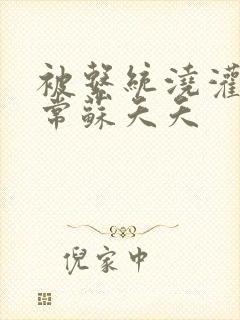 被繫統澆灌
常蘇夭夭
倪家中